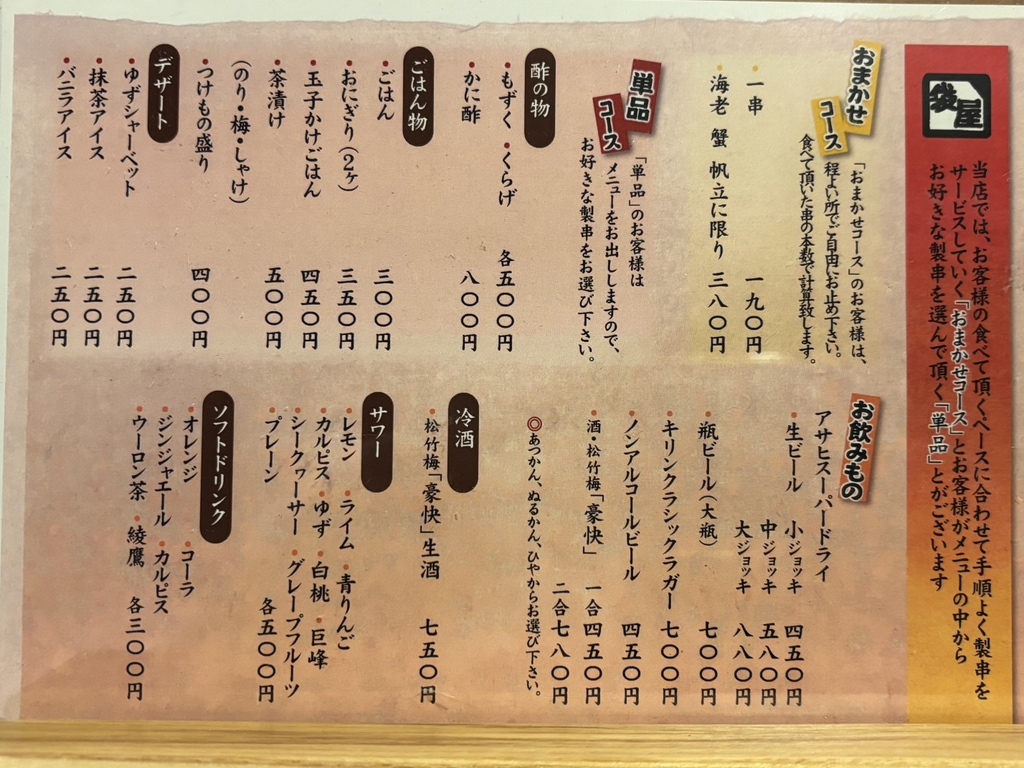 袋屋
当店では、お客様の食べて頂くペースに合わせて手順よく製串を
サービスしていく「おまかせコース」とお客様がメニューの中から
お好きな製串を選んで頂く「単品」とがございます
おまかせ
コース
「おまかせコース」のお客様は、
程よい所でご自由にお止め下さい。
食べて頂いた串の本数で計算致します。
一串 一九〇円
海老 蟹 帆立に限り 三八〇円
単品
コース
「単品」のお客様は
メニューをお出ししますので、
お好きな製串をお選び下さい。
酢の物
・もずく ・くらげ 各五〇〇円
・かに酢 八〇〇円
ごはん物
・ごはん 三〇〇円
・おにぎり(2ヶ) 三五〇円
・玉子かけごはん 四五〇円
・茶漬け 五〇〇円
(のり・梅・しゃけ)
・つけもの盛り 四〇〇円
デザート
・ゆずシャーベット 二五〇円
・抹茶アイス 二五〇円
・バニラアイス 二五〇円
お飲みもの
アサヒスーパードライ
・生ビール 小ジョッキ 四五〇円
中ジョッキ 五八〇円
大ジョッキ 八八〇円
・瓶ビール(大瓶) 七〇〇円
・キリンクラシックラガー 七〇〇円
・ノンアルコールビール 四五〇円
・酒・松竹梅「豪快」 一合 四五〇円
二合 七八〇円
◎あつかん、ぬるかん、ひやからお選び下さい。
冷酒
・松竹梅「豪快」生酒 七五〇円
サワー
・レモン ・ライム ・青りんご
・カルピス ・ゆず ・白桃 ・巨峰
・シークヮーサー ・グレープフルーツ
・プレーン 各五〇〇円
ソフトドリンク
・オレンジ ・コーラ
・ジンジャエール ・カルピス
・ウーロン茶 ・綾鷹 各三〇〇円